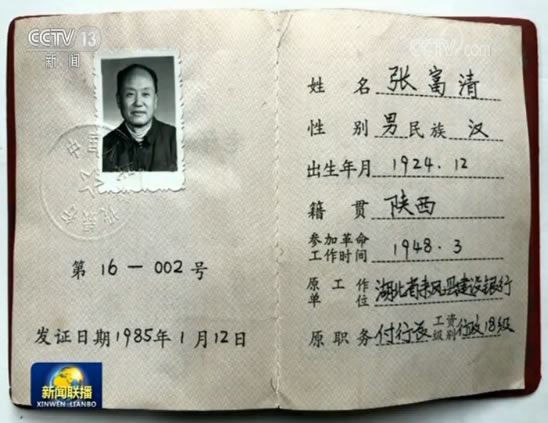 CCTV 13
新闻
CCTV.com
第16-002号
发证日期1985年1月12日
新闻联播
XINWEN LIANBO
姓名 张富清
性别 男 民族 汉
出生年月 1924.12
籍贯 陕西
参加革命工作时间 1948.3
原工作单位 湖北省来凤县建设银行
原职务 付行长 工资级别 行政18级